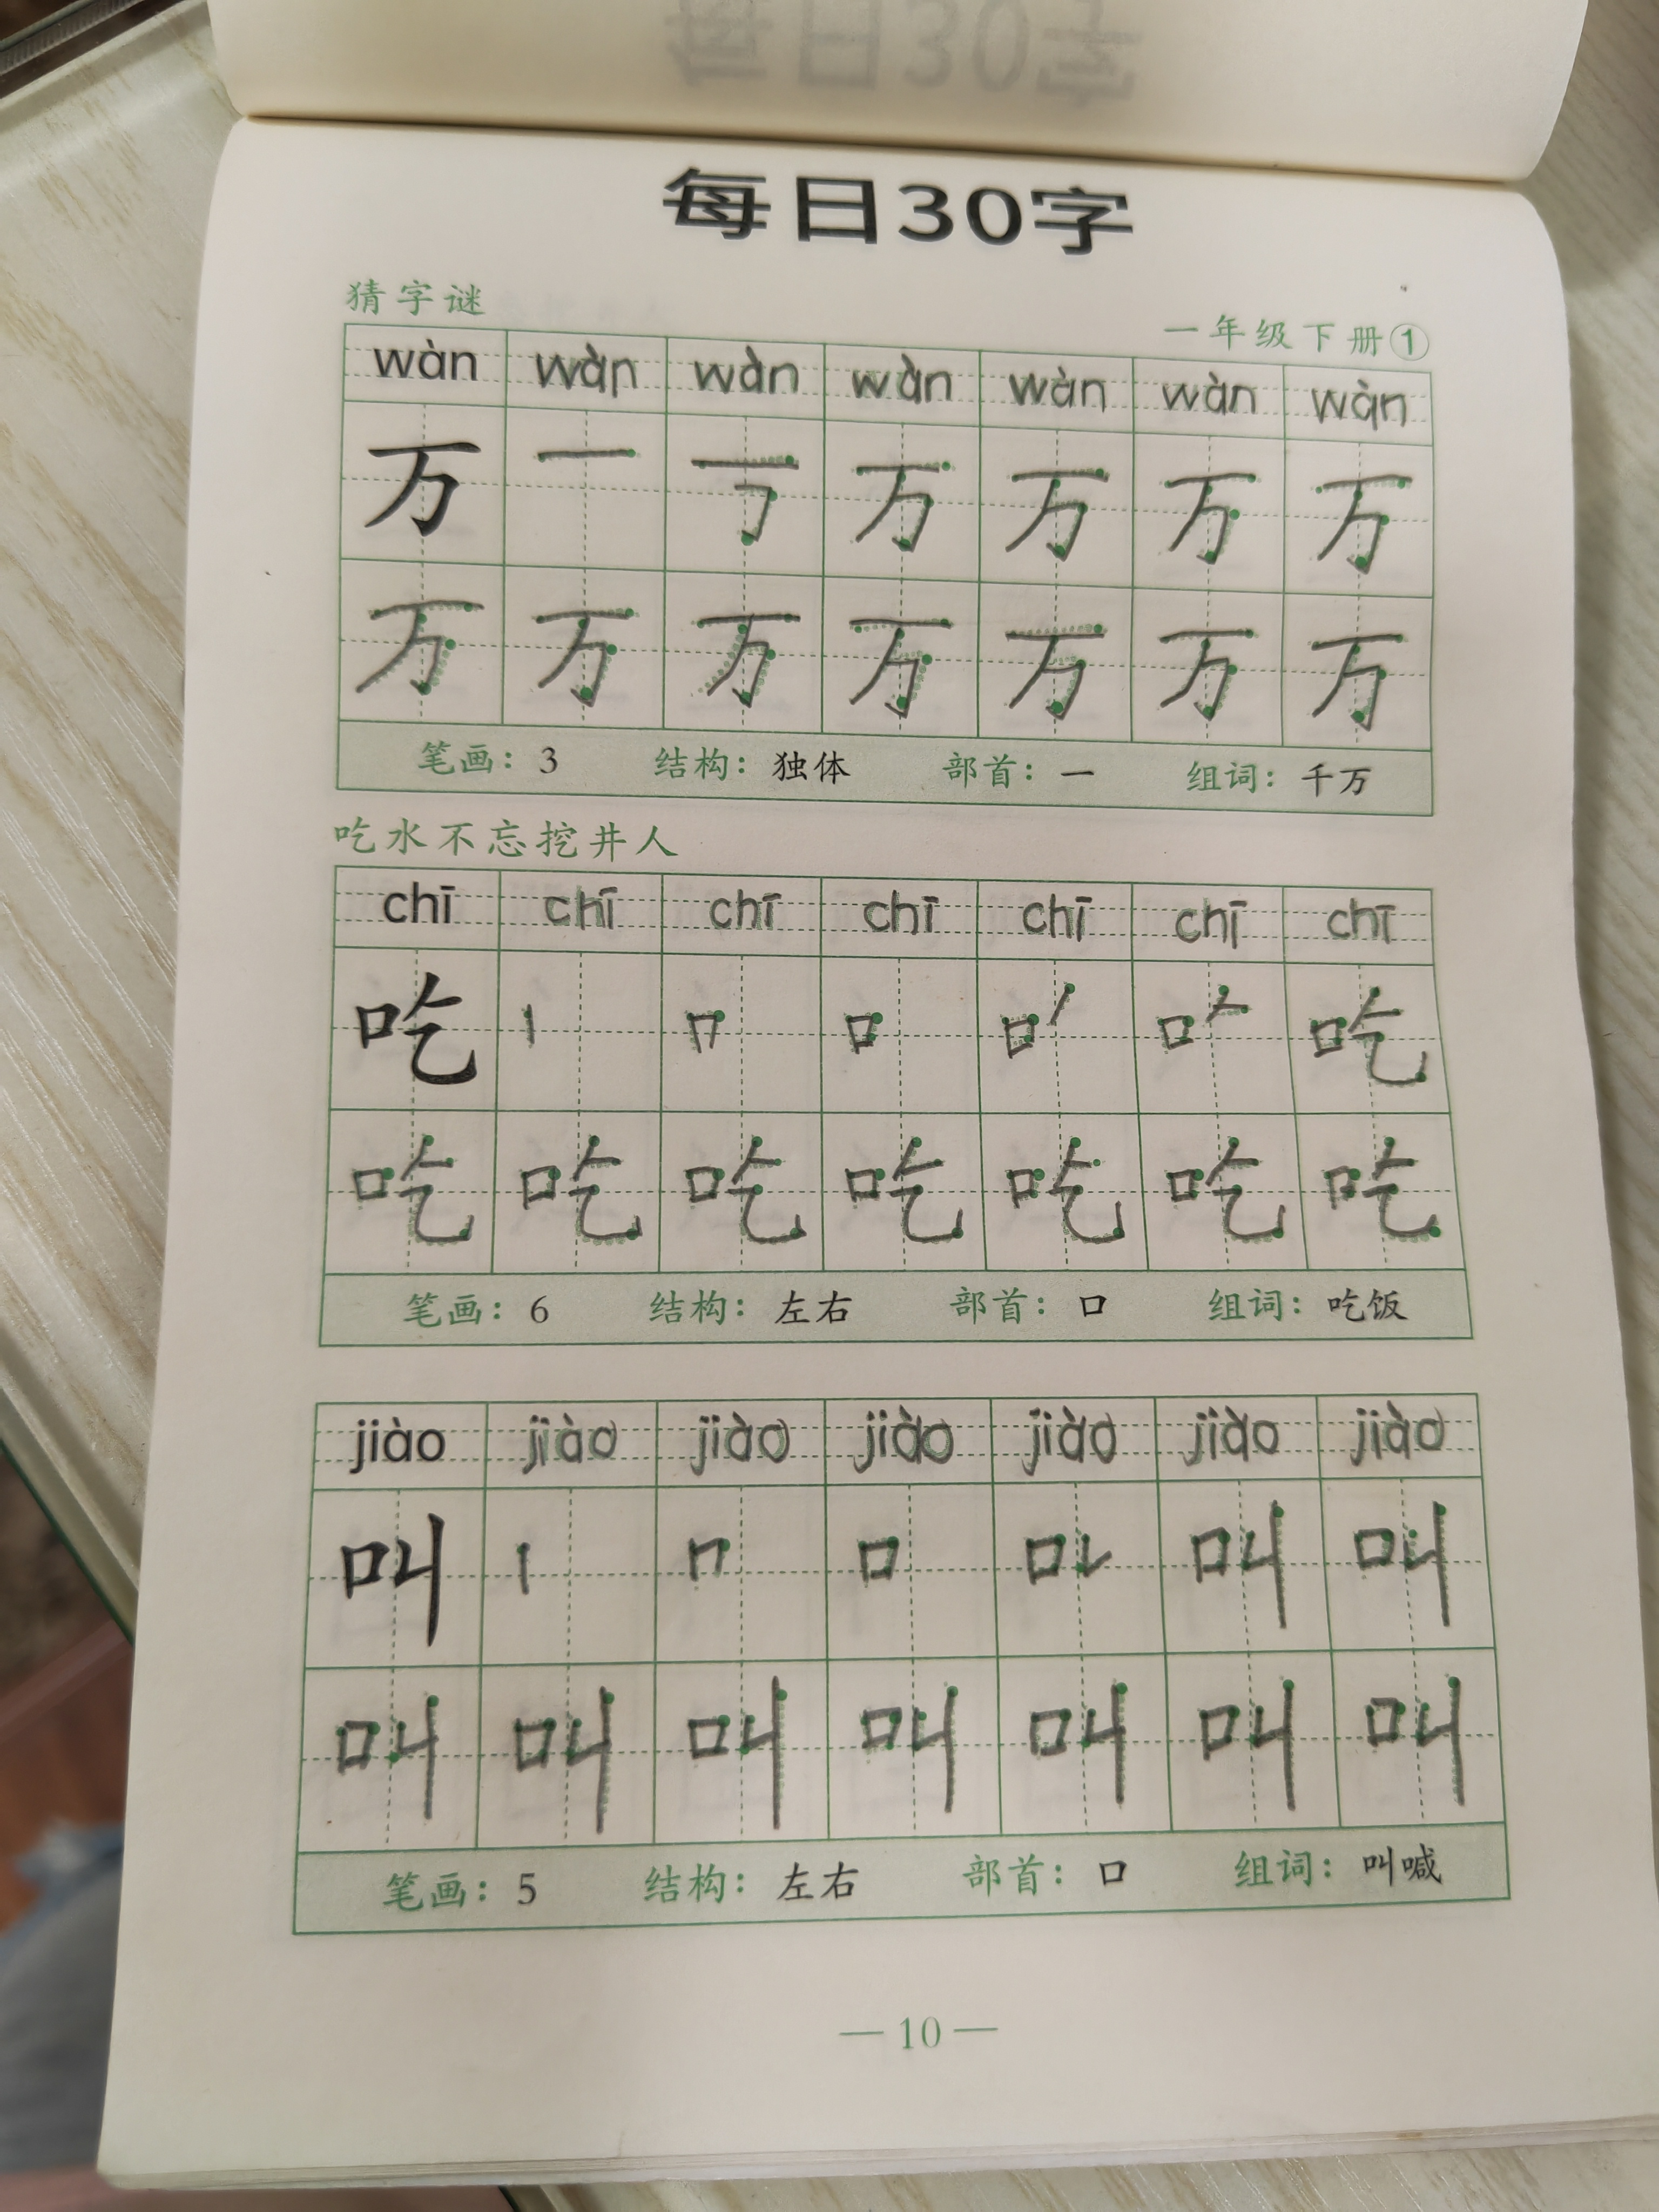 每日30字
猜字谜
一年级下册①
wàn wàn wàn wàn wàn wàn wàn
万 一 丆 万 万 万 万
万 万 万 万 万 万 万
笔画：3 结构：独体 部首：一 组词：千万
吃水不忘挖井人
chī chī chī chī chī chī chī
吃 丨 冂 口 口丿 口𠂉 吃
吃 吃 吃 吃 吃 吃 吃
笔画：6 结构：左右 部首：口 组词：吃饭
jiào jiào jiào jiào jiào jiào jiào
叫 丨 冂 口 口㇄ 叫 叫
叫 叫 叫 叫 叫 叫 叫
笔画：5 结构：左右 部首：口 组词：叫喊
—10—